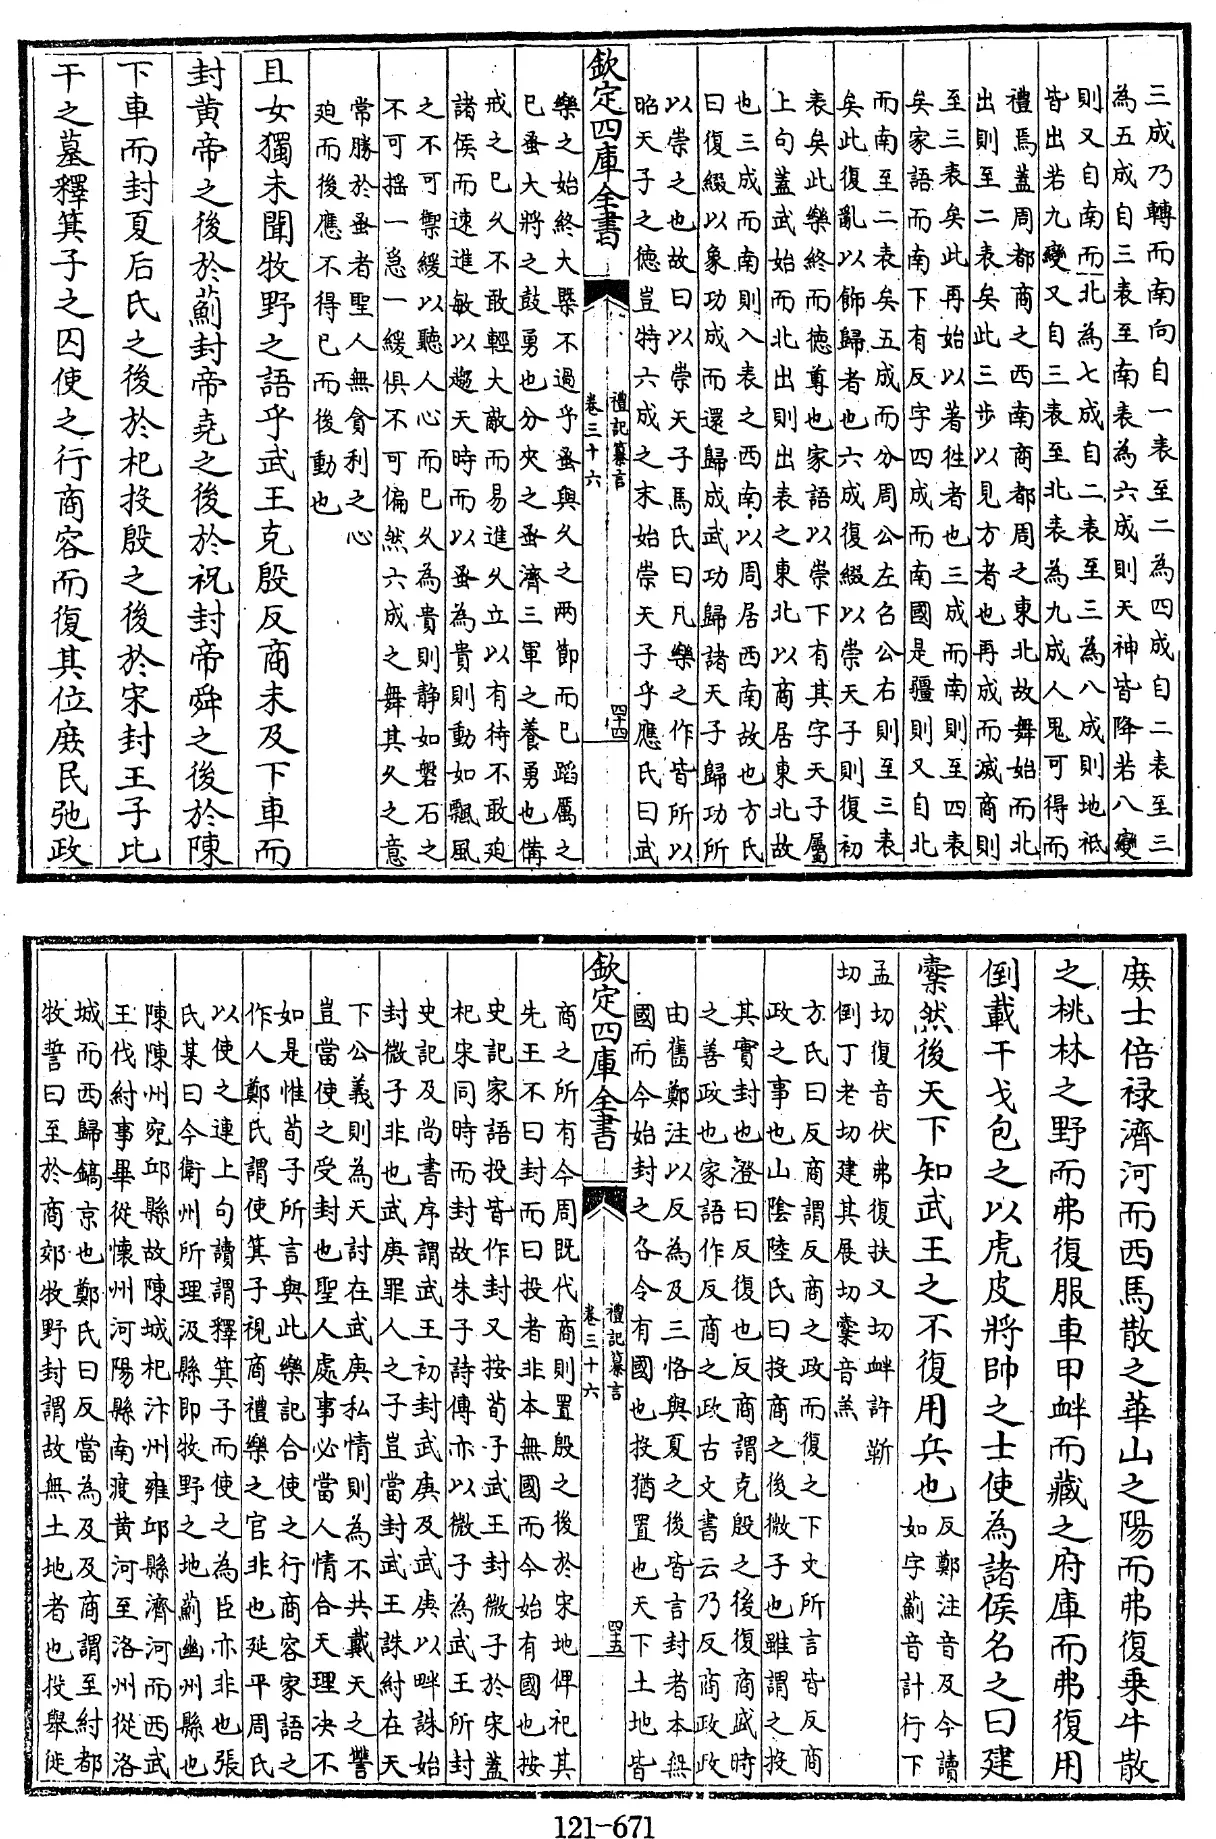 三成乃轉而南向自一表至二為四成自二表至三
為五成自三表至南表為六成則天神皆降若八變
則又自南而北為七成自二表至三為八成則地祗
皆出若九變又自三表至北表為九成人鬼可得而
禮焉蓋周都商之西南商都周之東北故舞始而北
出則至二表矣此三步以見方者也再成而滅商則
至三表矣此再始以著徃者也三成而南則至四表
矣家語而南下有反字四成而南國是疆則又自北
而南至二表矣五成而分周公左召公右則至三表
矣此復亂以飾歸者也六成復綴以崇天子則復初
表矣此樂終而德尊也家語以崇下有其字天子屬
上句蓋武始而北出則出表之東北以商居東北故
也三成而南則入表之西南以周居西南故也方氏
曰復綴以象功成而還歸成武功歸諸天子歸功所
以崇之也故曰以崇天子馬氏曰凡樂之作皆所以
昭天子之德豈特六成之末始崇天子乎應氏曰武
欽定四庫全書
禮記纂言
卷三十六
四十四
樂之始終大槩不過乎蚤與久之兩節而已蹈厲之
已蚤大將之鼓勇也分夾之蚤濟三軍之養勇也備
戒之已久不敢輕大敵而易進久立以有待不敢廹
諸侯而速進敏以趨天時而以蚤為貴則動如飄風
之不可禦緩以聽人心而已久為貴則静如磐石之
不可揺一急一緩俱不可偏然六成之舞其久之意
常勝於蚤者聖人無貪利之心
廹而後應不得已而後動也
且女獨未聞牧野之語乎武王克殷反商未及下車而
封黄帝之後於薊封帝堯之後於祝封帝舜之後於陳
下車而封夏后氏之後於杞投殷之後於宋封王子比
干之墓釋箕子之囚使之行商容而復其位庶民弛政
庶士倍禄濟河而西馬散之華山之陽而弗復乗牛散
之桃林之野而弗復服車甲衅而藏之府庫而弗復用
倒載干戈包之以虎皮將帥之士使為諸侯名之曰建
櫜然後天下知武王之不復用兵也
反鄭注音及今讀
如字薊音計行下
孟切復音伏弗復扶又切衅許靳
切倒丁老切建其展切櫜音羔
方氏曰反商謂反商之政而復之下文所言皆反商
政之事也山陰陸氏曰投商之後微子也雖謂之投
其實封也澄曰反復也反商謂克殷之後復商盛時
之善政也家語作反商之政古文書云乃反商政政
由舊鄭注以反為及三恪與夏之後皆言封者本無
國而今始封之各令有國也投猶置也天下土地皆
欽定四庫全書
禮記纂言
卷三十六
四十五
商之所有今周既代商則置殷之後於宋地俾祀其
先王不曰封而曰投者非本無國而今始有國也按
史記家語投皆作封又按荀子武王封微子於宋蓋
杞宋同時而封故朱子詩傳亦以微子為武王所封
史記及尚書序謂武王初封武庚及武庚以畔誅始
封微子非也武庚罪人之子豈當封武王誅紂在天
下公義則為天討在武庚私情則為不共戴天之讐
豈當使之受封也聖人處事必當人情合天理决不
如是惟荀子所言與此樂記合使之行商容家語之
作人鄭氏謂使箕子視商禮樂之官非也延平周氏
以使之連上句讀謂釋箕子而使之為臣亦非也張
氏某曰今衛州所理汲縣即牧野之地薊幽州縣也
陳陳州宛邱縣故陳城杞汴州雍邱縣濟河而西武
王伐紂事畢從懷州河陽縣南渡黄河至洛州從洛
城而西歸鎬京也鄭氏曰反當為及及商謂至紂都
牧誓曰至於商郊牧野封謂故無土地者也投舉徙
121-671